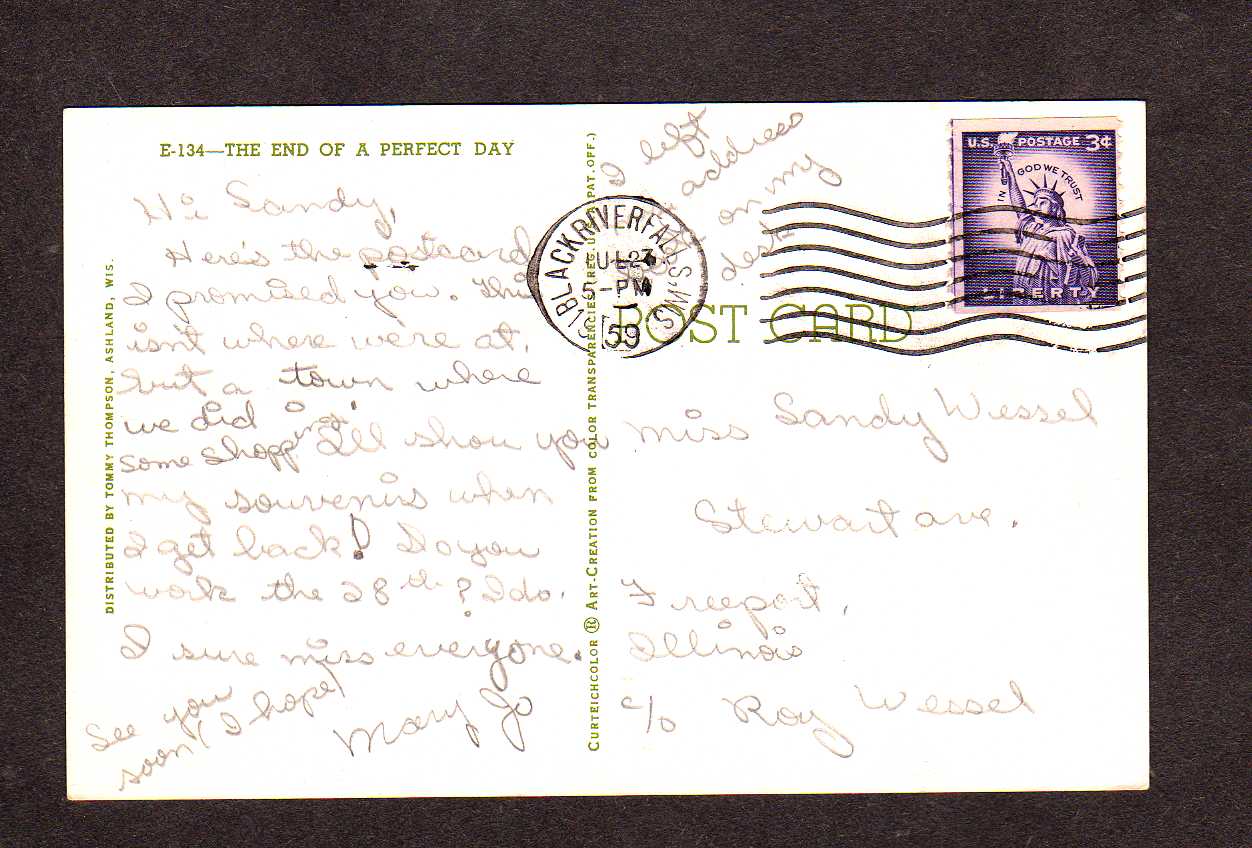 E-134—THE END OF A PERFECT DAY
Hi Sandy,
Here's the postcard
I promised you. This
isn't where we're at,
but a town where
we did
some shopping. I'll show you
my souvenirs when
I get back! Do you
work the 28th? I do.
I sure miss everyone.
See you
soon (I hope)
Mary Jo
DISTRIBUTED BY TOMMY THOMPSON, ASHLAND, WIS.
CURTEICHCOLOR ® ART-CREATION FROM COLOR TRANSPARENCIES (REG. U.S.A. PAT. OFF.)
I left
address
on my
desk
BLACK RIVER FALLS, WIS.
JUL 23
5-PM
1959
POST CARD
U.S. POSTAGE 3¢
IN GOD WE TRUST
LIBERTY
Miss Sandy Wessel
Stewart ave.
Freeport,
Illinois
c/o Roy Wessel